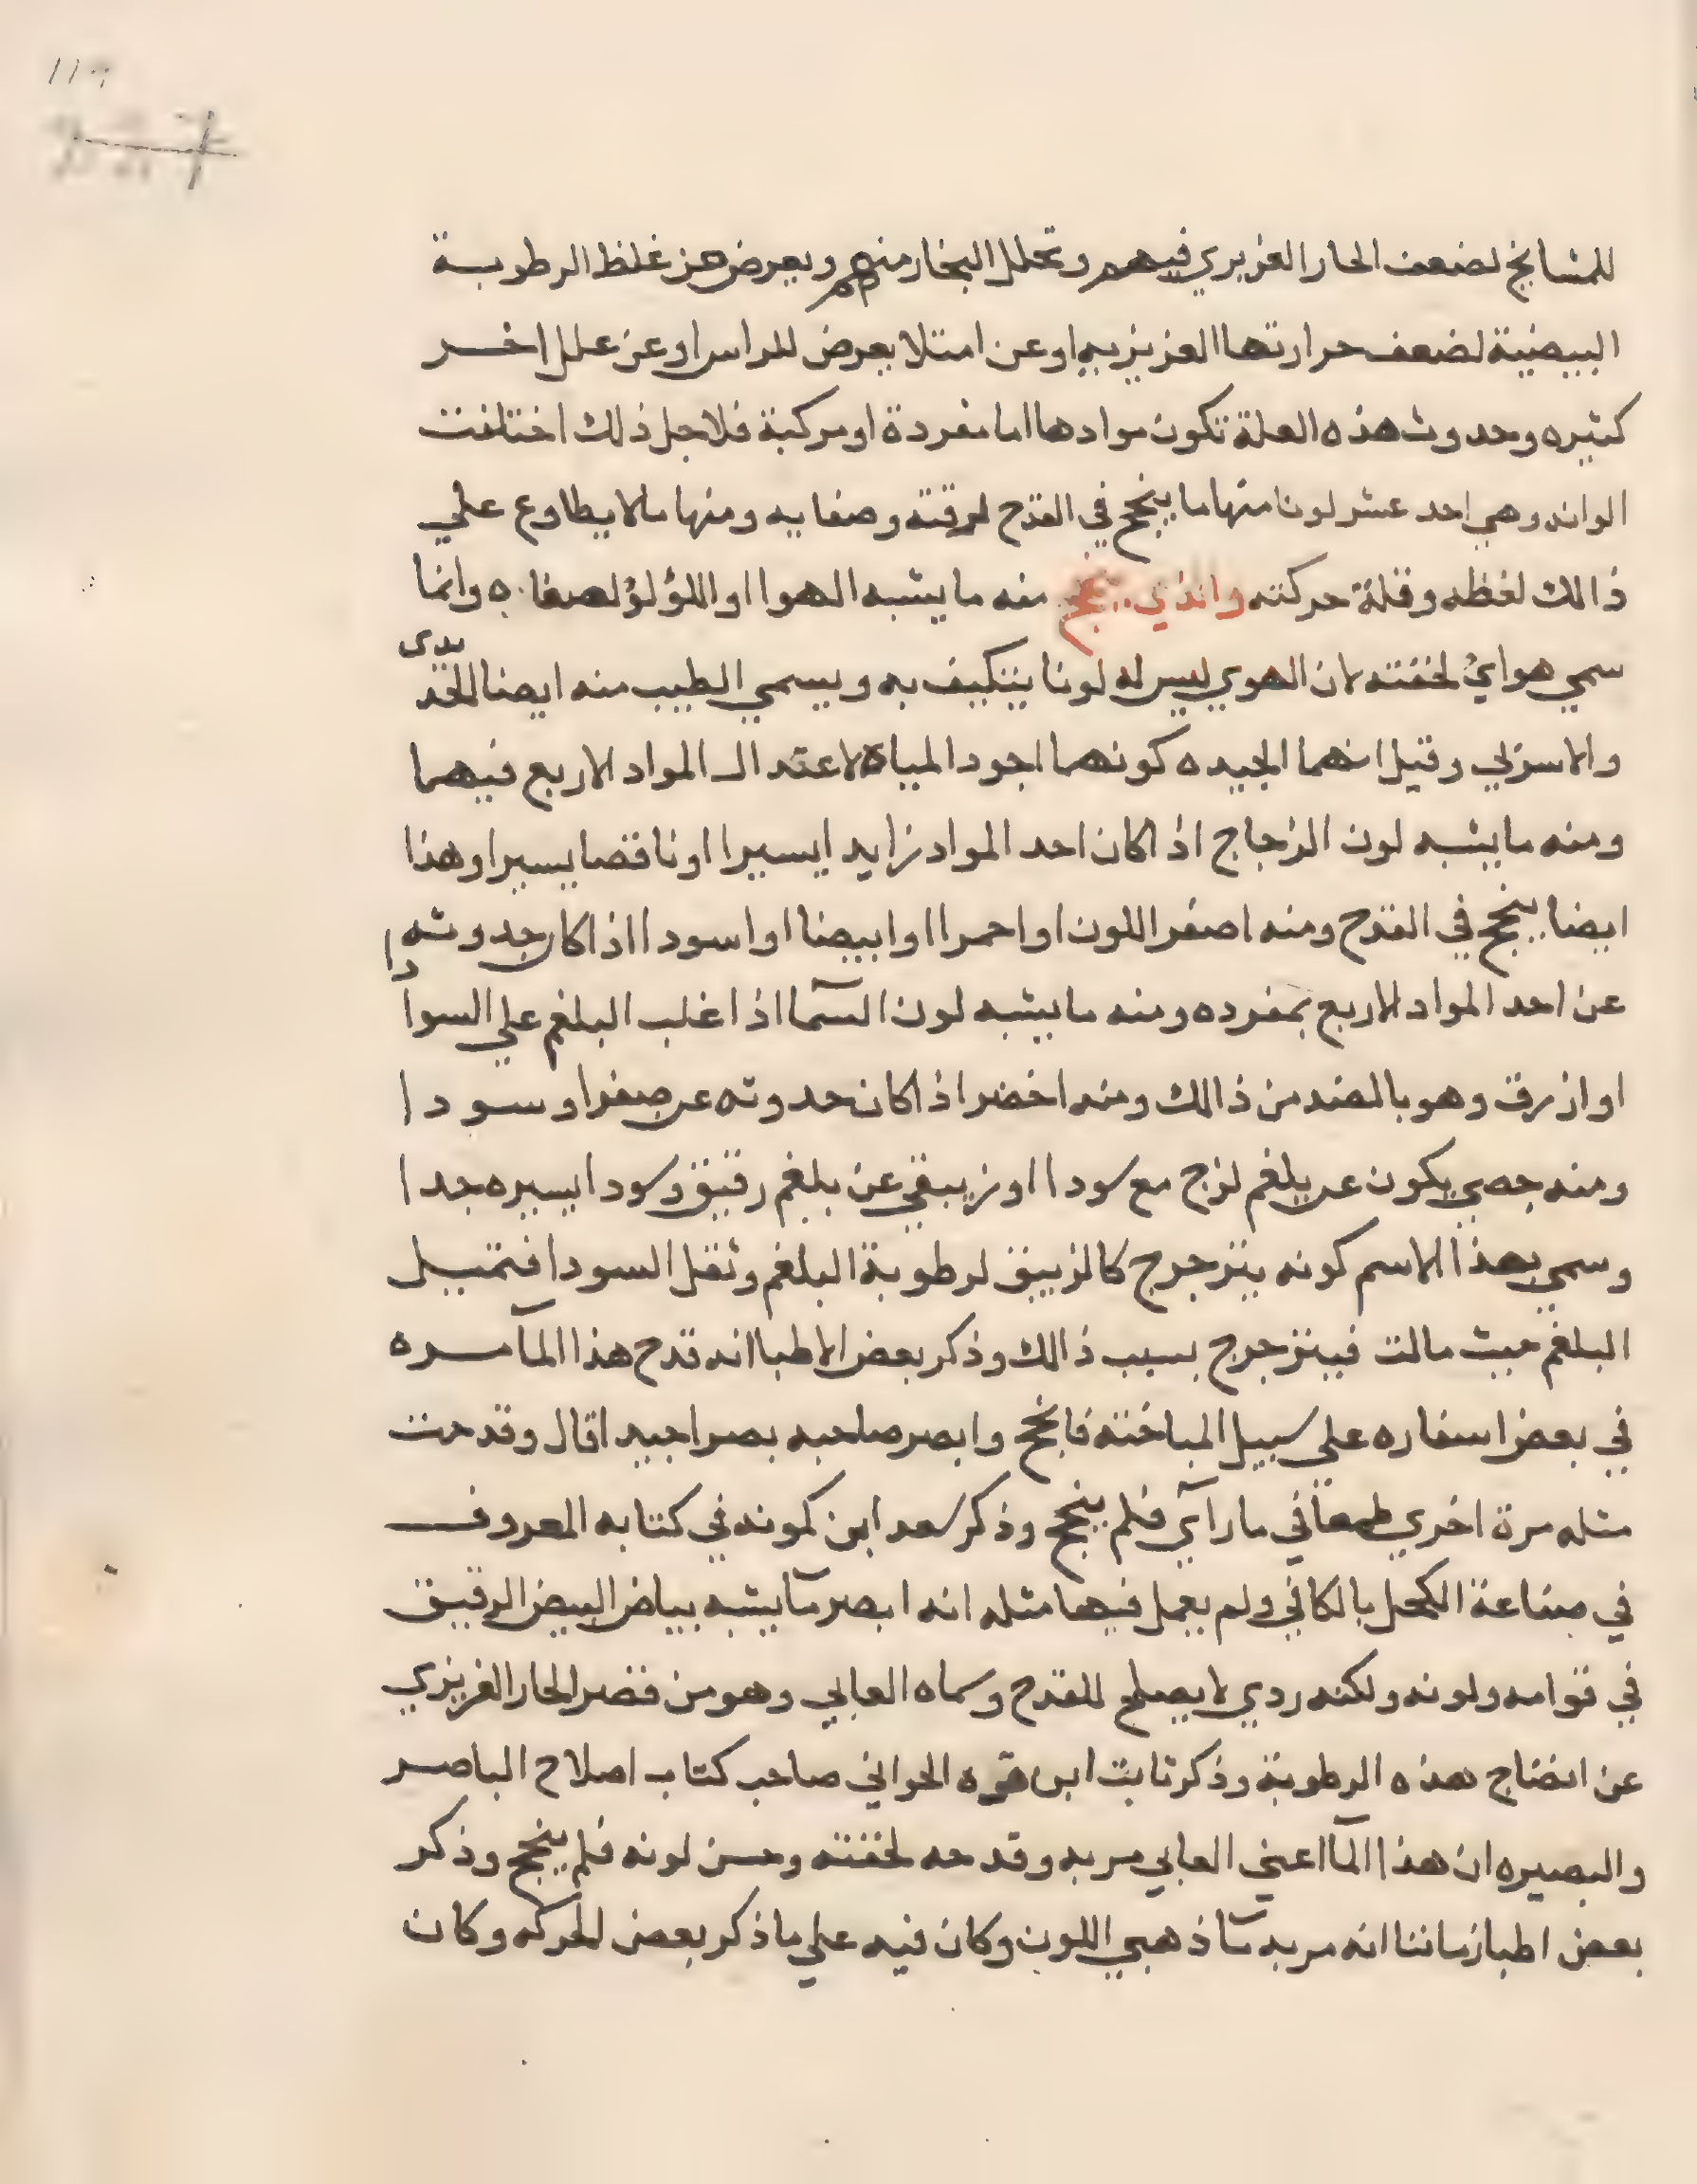 للمشايخ لضعف الحار الغزيري فيهم وتحلل البخار منهم ويعرض عن غلظ الرطوبة
البيضية لضعف حرارتها الغزيزيه او عن امتلا يعرض للراس او عن علل اخر
كثيره وحدوث هذه العلة تكون موادها اما مفردة او مركبة فلاجل ذلك اختلفت
الوانه وهي احد عشر لونا منها ما ينجح في القدح لرقته وصفايه ومنها ما لا يطاوع علي
ذالك لغظه وقلة حركته والذي ينجح منه ما يشبه الهوا او اللؤلؤ لصفا ه وانما
سمي هوايً لخفته لان الهوي ليس له لونا يتكيف به ويسمي الطيب منه ايضا
والاسربي وقيل انهما الجيده كونهما اجود المياه لاعتدال المواد الاربع فيهما
ومنه ما يشبه لون الزجاج اذا كان احد المواد زايد ايسيرا او ناقصا يسيرا وهذا
ايضا ينجح في القدح ومنه اصفر اللون او احمرا او ابيضا او اسودا اذا كان حدوثه
عن احد المواد الاربع بمفرده ومنه ما يشبه لون السمآ اذا غلب البلغم علي السودا
او ازرق وهو بالضد من ذالك ومنه اخضر اذا كان حدوثه عن صفرا وسودا
ومنه جصي يكون عن بلغم لزج مع سودا او زيبقي عن بلغم رقيق وسودا يسيره جدا
وسمي بهذا الاسم كونه يتزجرج كالزيبق لرطوبة البلغم وثقل السودا فتميل
البلغم حيث مالت فيتزجرج بسبب ذالك وذكر بعض الاطبا انه قدح هذا المآ مره
في بعض اسفاره علي سبيل المباختة فانجح وابصر صاحبه بصرا جيد اقال وقدحت
مثله مرة اخري طمعا في ما رآي فلم ينجح وذكر سعد ابن كمونه في كتابه المعروف
في صناعة الكحل بالكافي ولم يعمل فيها مثله انه ابصر مآ يشبه بياض البيض الرقيق
في قوامه ولونه ولكنه ردي لا يصلح للقدح وسماه العابي وهو من قصر الحار الغريزي
عن انضاج هذه الرطوبة وذكر ثابت ابن قره الحراني صاحب كتاب اصلاح الباصر
والبصيره ان هذا المآ اعني العابي مر به وقدحه لخفته وحسن لونه فلم ينجح وذكر
بعض اطبا زماننا انه مر به مآ ذهبي اللون وكان فيه علي ما ذكر بعض الحركه وكان